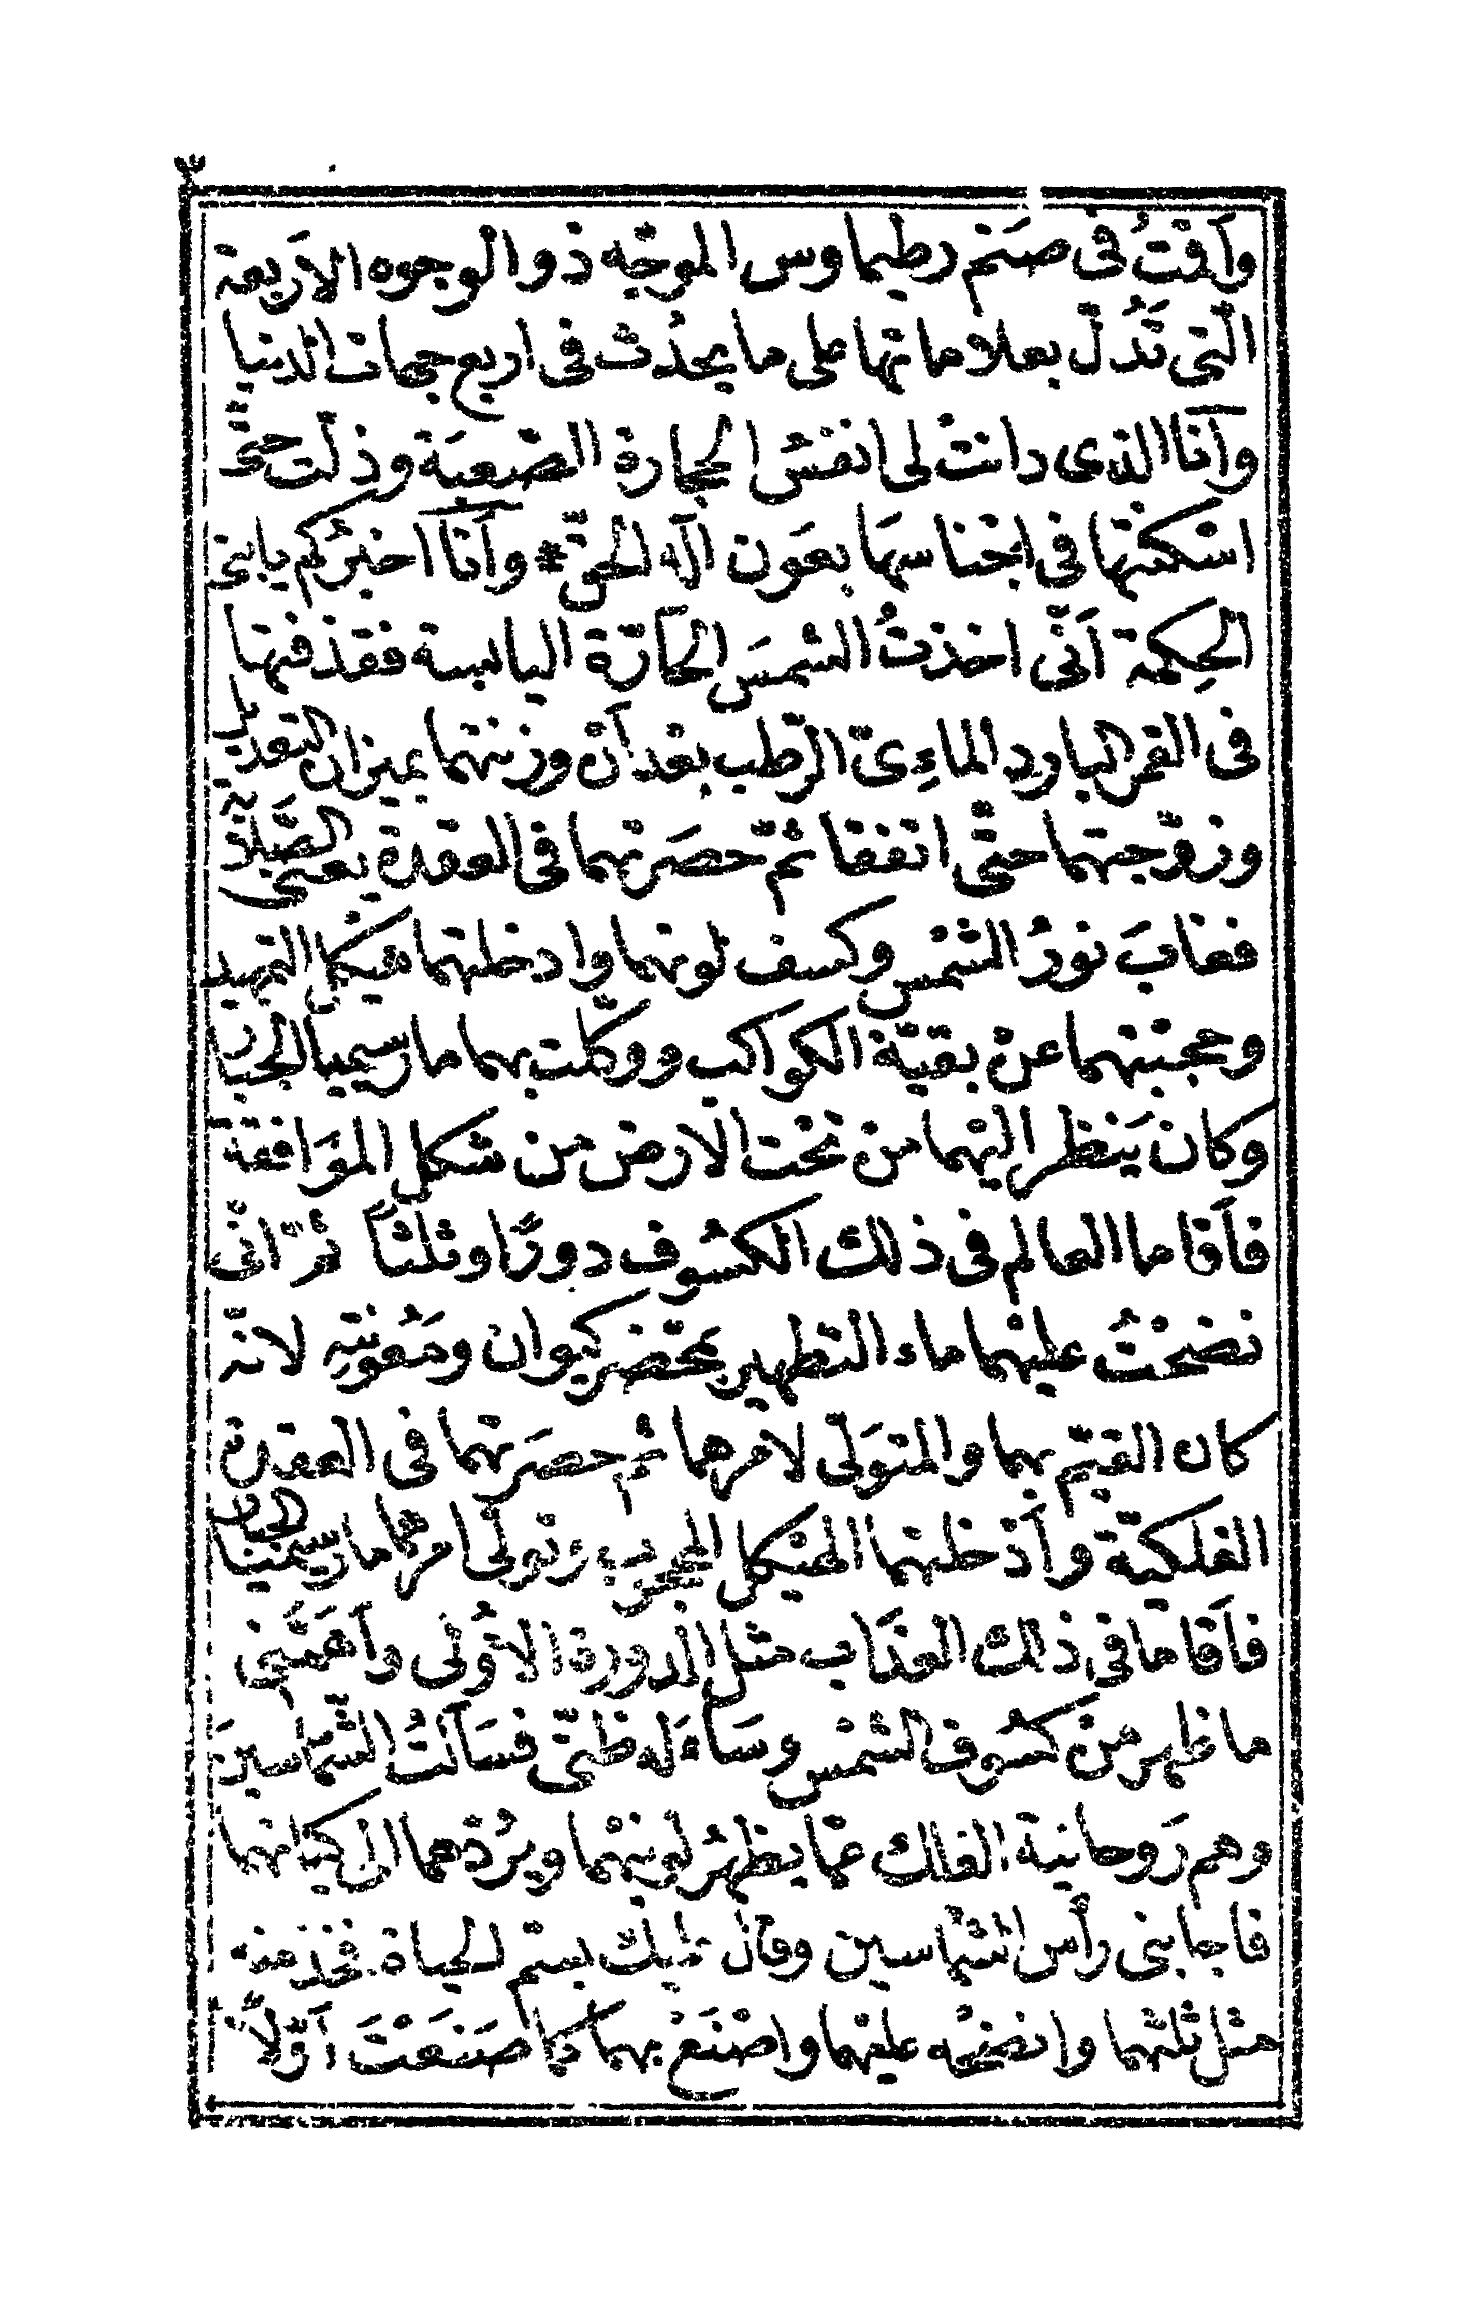 ٣
وأقمتُ فى صَنم رطيماوس الموجّه ذو الوجوه الاَربعة
الّتى تَدُلّ بعلاماتها على ما يحدُث فى اربع جهات الدنيا
وآنا الذى دانتْ لى انفسُ الحجارة الصّعبَة وذلّت حتّى
اسْكنتها فى اجْناسهَا بعَون الٓه الحقّ * وآنا اخبرُكم يا بنى
الحِكمة اَنّى اخذتُ الشمسَ الحآرّة اليابسة فقذفتها
فى القمر البارد الماءِىّ الرّطب بعْد اَنْ وزنتهما بميزان التعديل
وزوّجتهما حتّى اتفقا ثمّ حصَرتهما فى العقدة يعنى الصَّلآد
فغابَ نورُ الشمْس وكسف لونهما وادخلتهما هيكل التمهيد
وحجبْتهما عنْ بقيّة الكواكب ووكّلت بهما مارسيميا الجبّار
وكان يَنظر اليْهما من تحْت الارض من شكل الموَافقة
فاَقاما العالم فى ذلك الكسُوف دورًا وثلثاً ثمّ انّى
نضحْتُ عليْهما ماء التّطهير بمحْضر كيوان ومَعُونتِهِ لانّه
كان القيّم بهما والمتوَلّى لامرهما ثمّ حصَرتهما فى العقدة
الفلكيّة وأدْخلتهما الهيْكل وتولّى امرهما مارسيمْيا الجبّار
فاَقاما فى ذلك العذَاب مثْل الدورة الاُولى واَهَمَّنِى
ما ظهر منْ كسُوف الشمْس وسَاءَله ظنّى فسَاَلتُ الشّمّاسينَ
وهم رَوحانية الفلك عمّا يظهرُ لونيْهما ويرُدّهما الى كيانهما
فاجابنى رأس الشمّاسين وقال بستم الحياة فخذ منه
مثل ثلثهما وانضحْه عليْهما واصْنَعْ بهما كما صَنعْتَ اَوّلاً